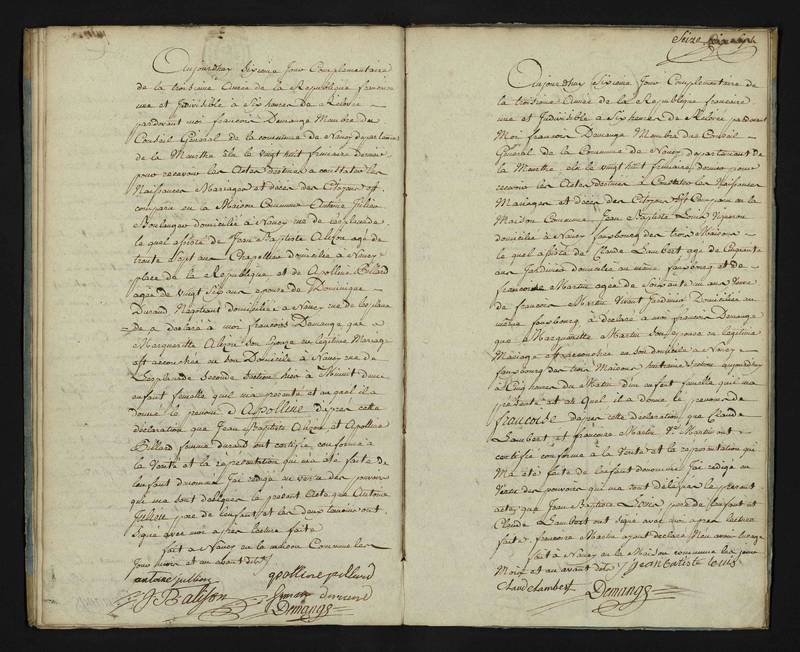 Aujourdhuy Sixieme Jour Complementaire
de la troisieme Année de la Republique francoise
une et Indivisible a Six heures de Relevée
pardevant moi francois Demange Membre du
Conseil Général de la commune de Nancy departement
de la Meurthe élu le vingt huit frimaire dernier
pour recevoir les Actes destinés a constater les
Naissances Mariages et deces des Citoyens est
comparu en la Maison Commune Antoine Julien
Boulanger domicilié a Nancy rue de lesplanade
le quel assisté de Jean Baptiste Alizon agé de
trente sept ans Chapellier domicilié a Nancy
place de la Republique et de Apolline Billard
agée de vingt six ans epouse de Dominique
Durand Negotiant domiciliée a Nancy rue de lesplana
de a declaré a moi francois Demange que
Margueritte Alizon son Epouse en legitime Mariage
est accouchée en son Domicile a Nancy rue de
Lesplanade seconde Section hier a Minuit dune
enfant femelle quil ma presenté et au quel il a
donné le prenom d'Apolline dapres cette
déclaration que Jean Baptiste Alizon et Apolline
Billard femme durand ont certifié conforme a
la Verité et la représentation qui ma été faite de
lenfant denommé Jai redigé en vertu des pouvoirs
qui me sont delegués le present Acte que Antoine
Julien pere de lenfant et les deux temoins ont
Signé avec moi apres lecture faite
fait a Nancy en la maison Commune les
Jour mois et an avant dits
antoine jullien apolline pillard
J B alison femme durand
Demange
Seize
Aujourdhuy Sixieme Jour Complementaire de
la troisieme Année de la Republique francoise
une et Indivisible a Six heures de Relevée pardevant
Moi francois Demange Membre du Conseil
Général de la Commune de Nancy departement de
la Meurthe élu le vingt huit frimaire dernier pour
recevoir les Actes destinés a Constater les Naissances
Mariages et deces des Citoyens est Comparu en la
Maison Commune Jean Baptiste Louis Vigneron
domicilié a Nancy fauxbourg des trois Maisons
le quel assisté de Claude Lambert agé de Cinquante
ans Jardinier domicilié au même fauxbourg et de
francoise Martin agée de soixante un ans Veuve
de francois Martin Vivant Jardinier Domiciliée au
même fauxbourg a declaré a moi francois Demange
que Margueritte Martin Son epouse en legitime
Mariage est accouchée en son domicile a Nancy
fauxbourg des trois Maisons huitieme Section aujourdhuy
a Cinq heures du Matin d'un enfant femelle quil ma
présenté et au Quel il a donné le prenom de
francoise dapres cette déclaration que Claude
Lambert et francoise Martin Ve Martin ont
certifié conforme a la Verité et la representation qui
Ma été faite de lenfant denommé Jai redigé en
Vertu des pouvoirs qui me sont délégués le present
acte que Jean Baptiste Louis pere de lenfant et
Claude Lambert ont signé avec moi apres lecture
faite francoise Martin ayant declaré
fait a Nancy en la Maison commune les jour
Mois et an avant dits Jean Batiste louis
Claud Lambert Demange